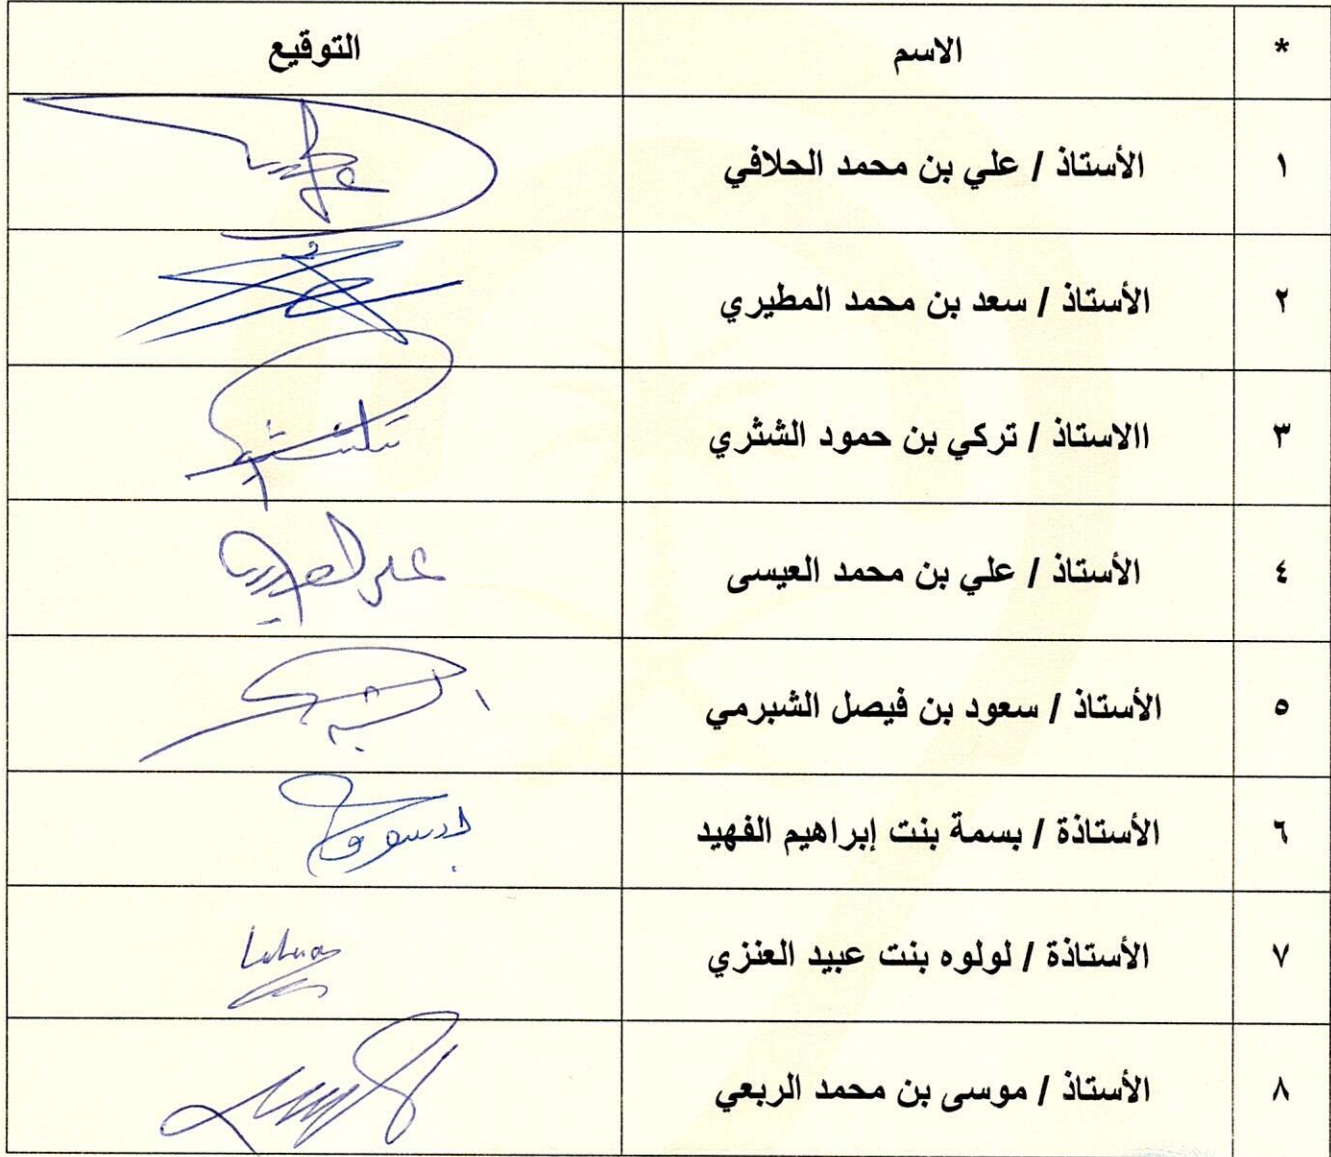 * الاسم التوقيع
١ الأستاذ / علي بن محمد الحلافي
٢ الأستاذ / سعد بن محمد المطيري
٣ االاستاذ / تركي بن حمود الشثري
٤ الأستاذ / علي بن محمد العيسى
٥ الأستاذ / سعود بن فيصل الشبرمي
٦ الأستاذة / بسمة بنت إبراهيم الفهيد
٧ الأستاذة / لولوه بنت عبيد العنزي
٨ الأستاذ / موسى بن محمد الربعي